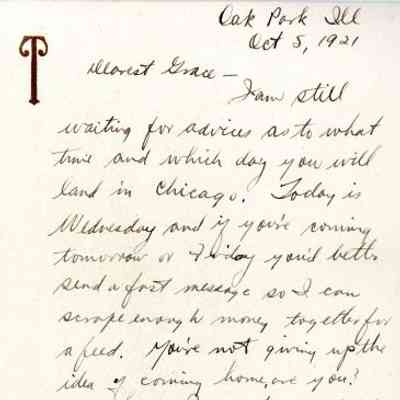 Oak Park Ill
Oct 5, 1921
T
Dearest Grace —
I am still
waiting for advices as to what
time and which day you will
land in Chicago. Today is
Wednesday and if you're coming
tomorrow or Friday you'd better
send a fast message so I can
scrape enough money together for
a feed. You're not giving up the
idea of coming home, are you?